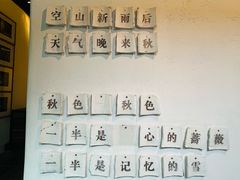 空山新雨后
天气晚来秋
秋色 秋色
一半是 心的蔷薇
一半是记忆的雪